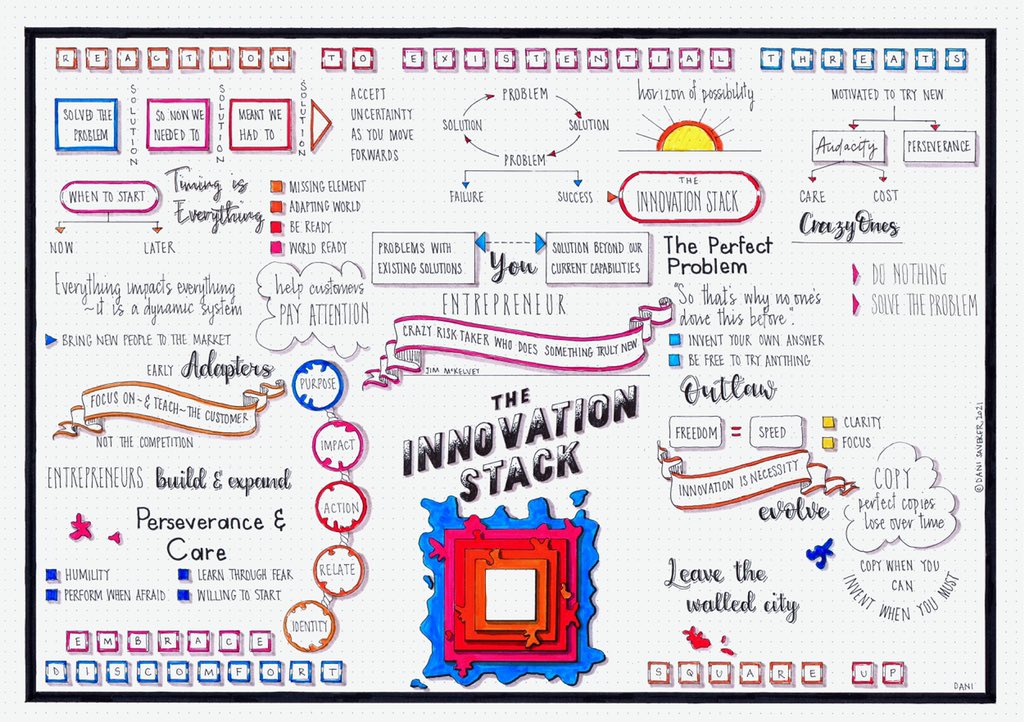 REACTION TO EXISTENTIAL THREATS
SOLVED THE
PROBLEM
SOLUTION
SO NOW WE
NEEDED TO
SOLUTION
MEANT WE
HAD TO
SOLUTION
ACCEPT
UNCERTAINTY
AS YOU MOVE
FORWARDS
PROBLEM
SOLUTION
SOLUTION
PROBLEM
FAILURE
SUCCESS
horizon of possibility
THE
INNOVATION STACK
MOTIVATED TO TRY NEW
Audacity
PERSEVERANCE
CARE
COST
Crazy Ones
DO NOTHING
SOLVE THE PROBLEM
WHEN TO START
NOW
LATER
Timing is
Everything
MISSING ELEMENT
ADAPTING WORLD
BE READY
WORLD READY
PROBLEMS WITH
EXISTING SOLUTIONS
You
SOLUTION BEYOND OUR
CURRENT CAPABILITIES
The Perfect
Problem
"So that's why no one's
done this before".
INVENT YOUR OWN ANSWER
BE FREE TO TRY ANYTHING
Everything impacts everything
~it is a dynamic system
help customers
PAY ATTENTION
BRING NEW PEOPLE TO THE MARKET
ENTREPRENEUR
CRAZY RISK TAKER WHO DOES SOMETHING TRULY NEW
JIM McKELVEY
EARLY Adapters
FOCUS ON~& TEACH~THE CUSTOMER
NOT THE COMPETITION
ENTREPRENEURS build & expand
Perseverance &
Care
HUMILITY
LEARN THROUGH FEAR
PERFORM WHEN AFRAID
WILLING TO START
PURPOSE
IMPACT
ACTION
RELATE
IDENTITY
THE
INNOVATION
STACK
Outlaw
FREEDOM = SPEED
CLARITY
FOCUS
INNOVATION IS NECESSITY
evolve
COPY
perfect copies
lose over time
COPY WHEN YOU
CAN
INVENT WHEN YOU MUST
Leave the
walled city
EMBRACE
DISCOMFORT
SQUARE UP
©DANI SAVEKER, 2021
DANI